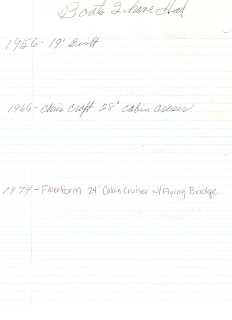 Boats I have Had
1956 - 19' Built
1966 - Chris Craft 28' cabin cruiser
1974 - Fiberform 24' Cabin Cruiser w/Flying Bridge